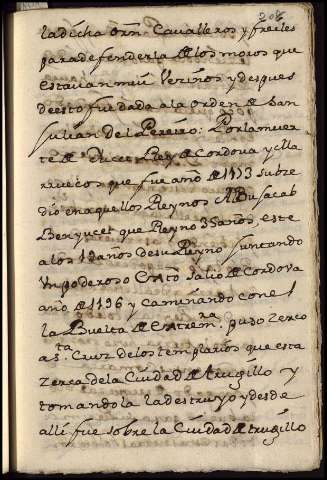 208
la dicha orñ. Cavalleros y freiles
para defenderla de los moros que
estavan mui Vezinos y despues
de esto fue dada a la orden de San
Julian del Pereiro: Por la muer
te de Rey de Cordova y Ma
rruecos que fue año de 1173 subze
dio en aquellos Reynos Abusacab
Benyucet que Reyno 35 años, este
a los 19 años de su Reyno juntando
Un poderoso exto salio de Cordova
año de 1196 y caminando con el
la Buelta de extremra. puso zerco
a sta. Cruz de los templarios que esta
Zerca de la Ciudad de trugillo y
tomandola la destruyo y desde
alli fue sobre la Ciudad de trugillo